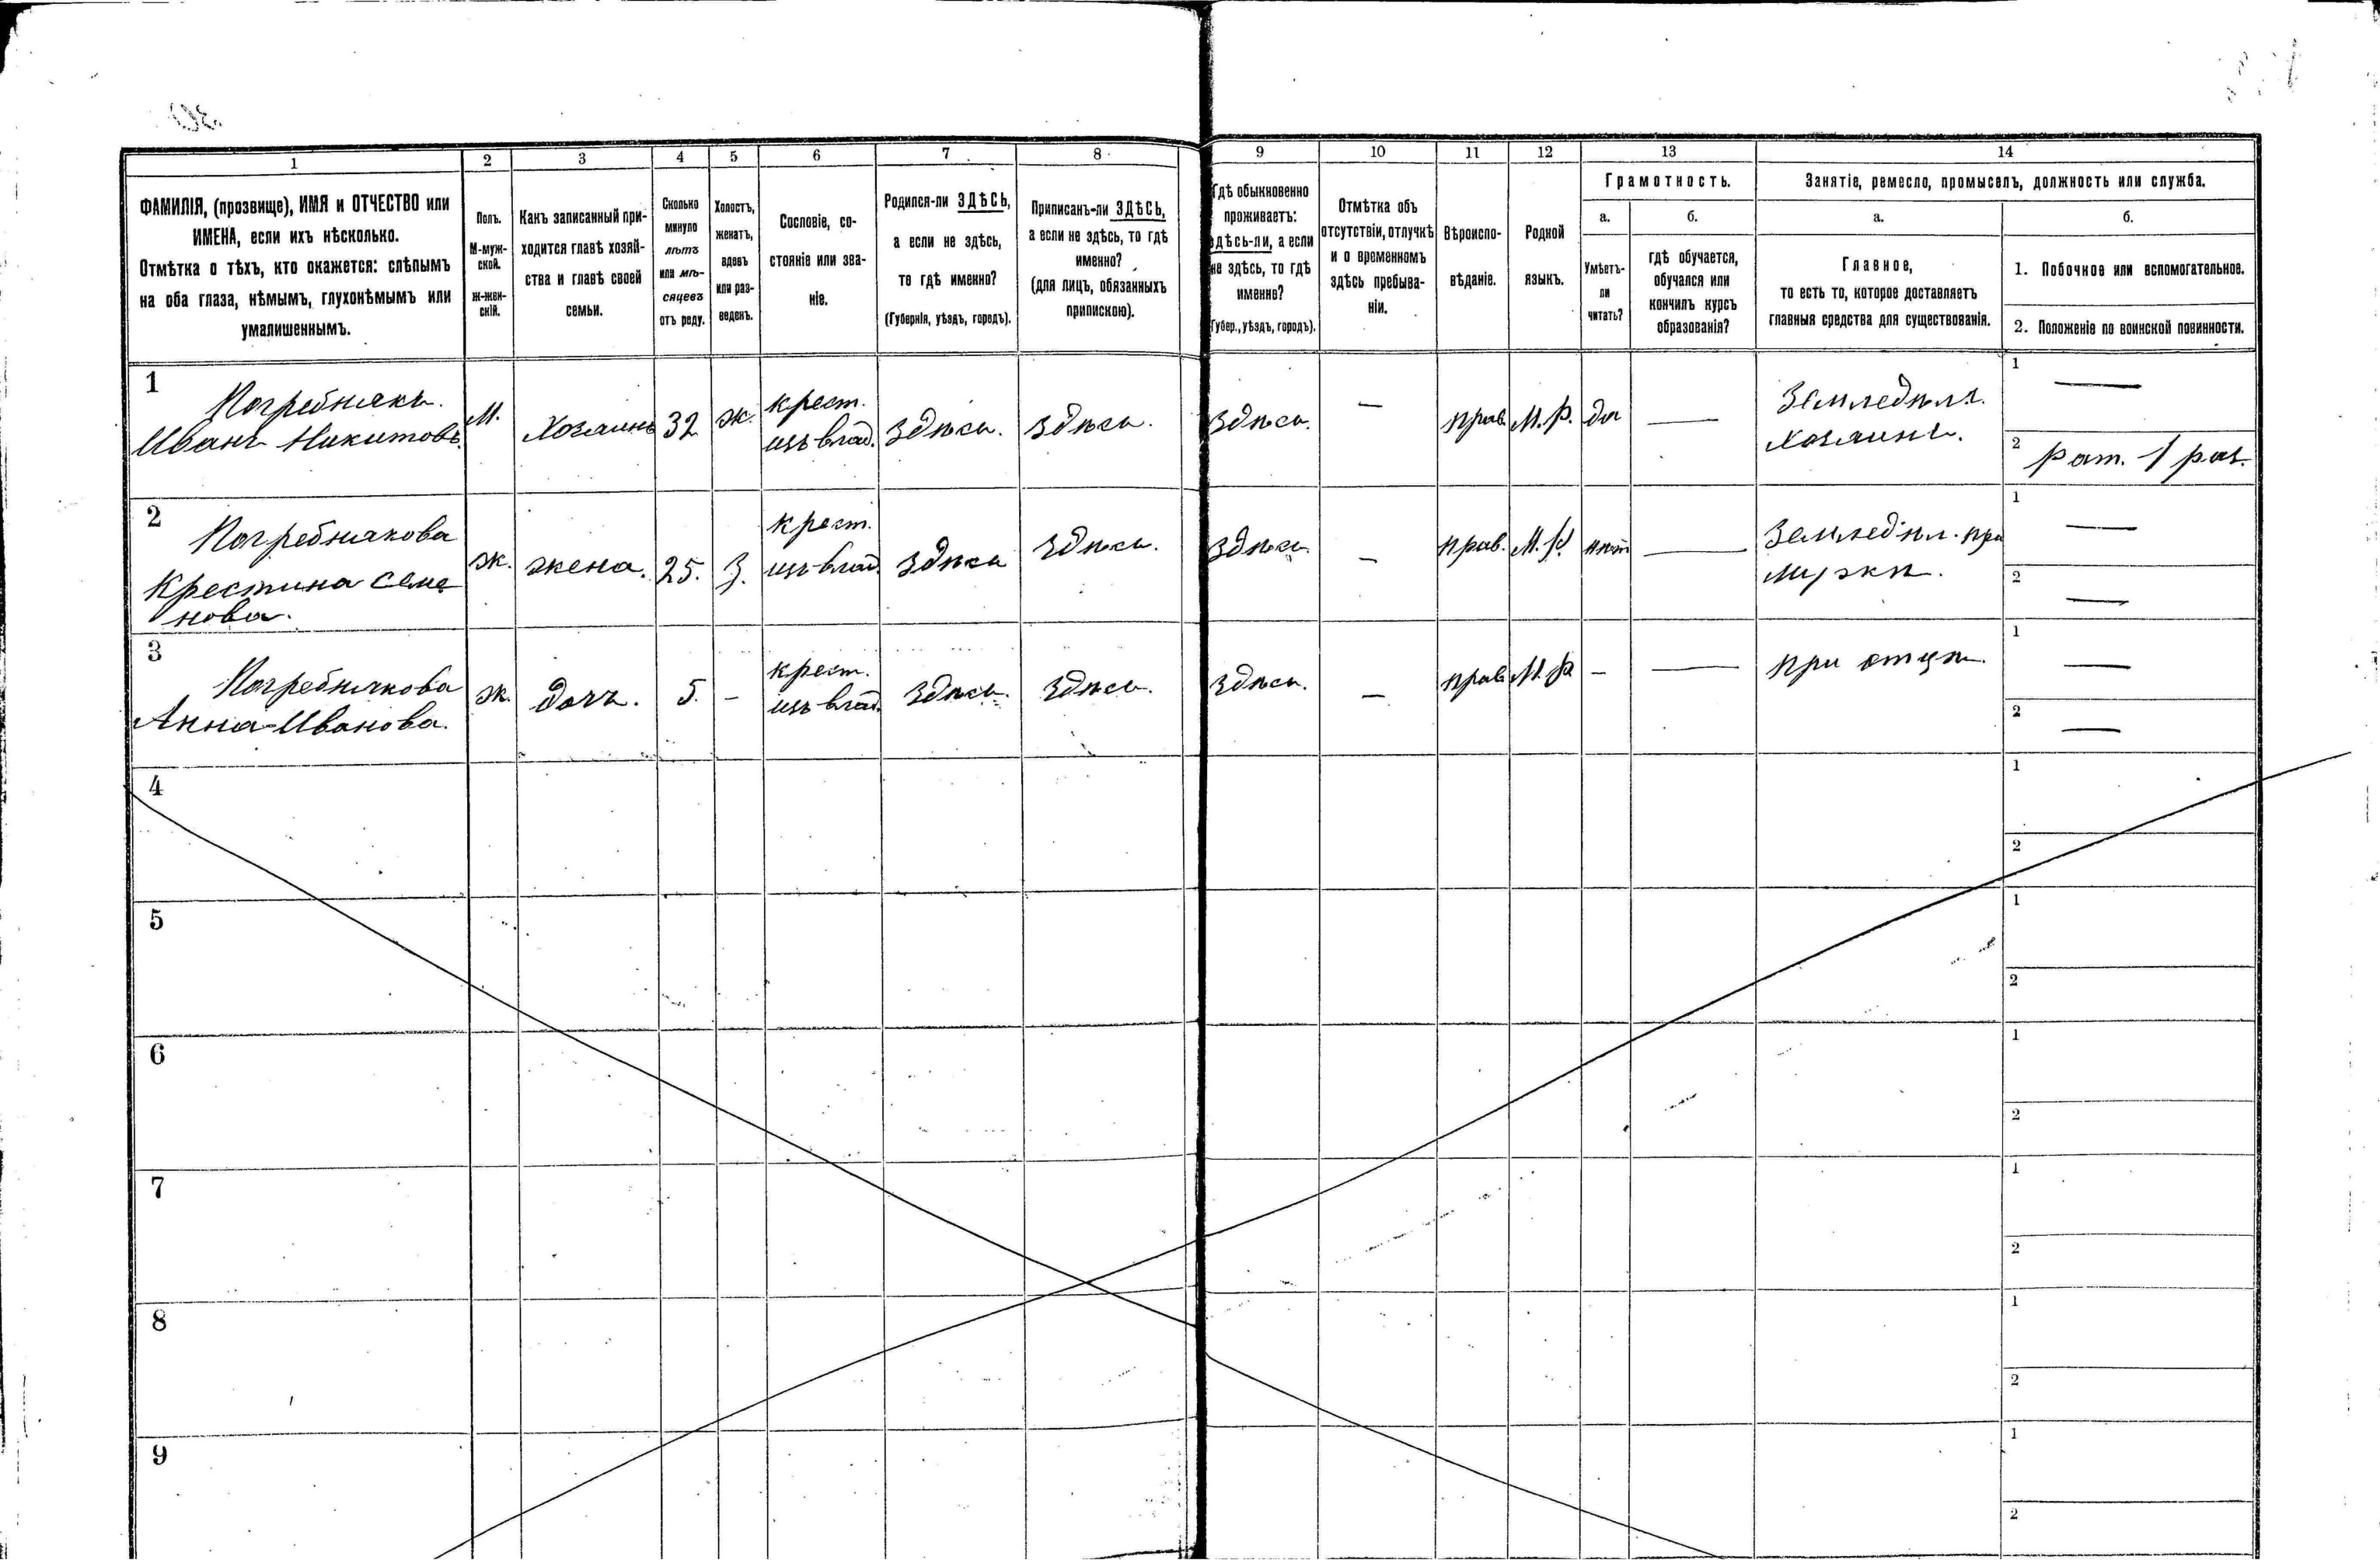 1 2 3 4 5 6 7 8 9 10 11 12 13 14
ФАМИЛІЯ, (прозвище), ИМЯ и ОТЧЕСТВО или
ИМЕНА, если ихъ нѣсколько.
Отмѣтка о тѣхъ, кто окажется: слѣпымъ
на оба глаза, нѣмымъ, глухонѣмымъ или
умалишеннымъ.
Полъ.
М-муж-
ской.
ж-жен-
скій.
Какъ записанный при-
ходится главѣ хозяй-
ства и главѣ своей
семьи.
Сколько
минуло
лѣтъ
или мѣ-
сяцевъ
отъ роду.
Холостъ,
женатъ,
вдовъ
или раз-
веденъ.
Сословіе, со-
стояніе или зва-
ніе.
Родился-ли ЗДѢСЬ,
а если не здѣсь,
то гдѣ именно?
(Губернія, уѣздъ, городъ).
Приписанъ-ли ЗДѢСЬ,
а если не здѣсь, то гдѣ
именно?
(для лицъ, обязанныхъ
припискою).
Гдѣ обыкновенно
проживаетъ:
здѣсь-ли, а если
не здѣсь, то гдѣ
именно?
(Губер., уѣздъ, городъ).
Отмѣтка объ
отсутствіи, отлучкѣ
и о временномъ
здѣсь пребыва-
ніи.
Вѣроиспо-
вѣданіе.
Родной
языкъ.
Грамотность.
а.
Умѣетъ-
ли
читать?
б.
гдѣ обучается,
обучался или
кончилъ курсъ
образованія?
Занятіе, ремесло, промыселъ, должность или служба.
а.
Главное,
то есть то, которое доставляетъ
главныя средства для существованія.
б.
1. Побочное или вспомогательное.
2. Положеніе по воинской повинности.
1
Погребнякъ.
Иванъ Никитовъ.
М.
Хозяинъ
32
ж.
крест.
изъ влад.
здѣсь.
здѣсь.
здѣсь.
—
прав.
М.Р.
да
—
Земледѣл.
Хозяинъ.
1 —
2 рат. 1 раз.
2
Погребнякова
Крестина Семе
нова.
ж.
жена.
25.
З.
крест.
изъ влад.
здѣсь
здѣсь.
здѣсь.
—
прав.
М.Р.
нѣт
—
Земледѣл. при
мужѣ.
1 —
2 —
3
Погребнякова
Анна Иванова.
ж.
дочь.
5.
–
крест.
изъ влад.
здѣсь.
здѣсь.
здѣсь.
—
прав
М.Р
–
—
при отцѣ.
1 —
2 —
4
1
2
5
1
2
6
1
2
7
1
2
8
1
2
9
1
2